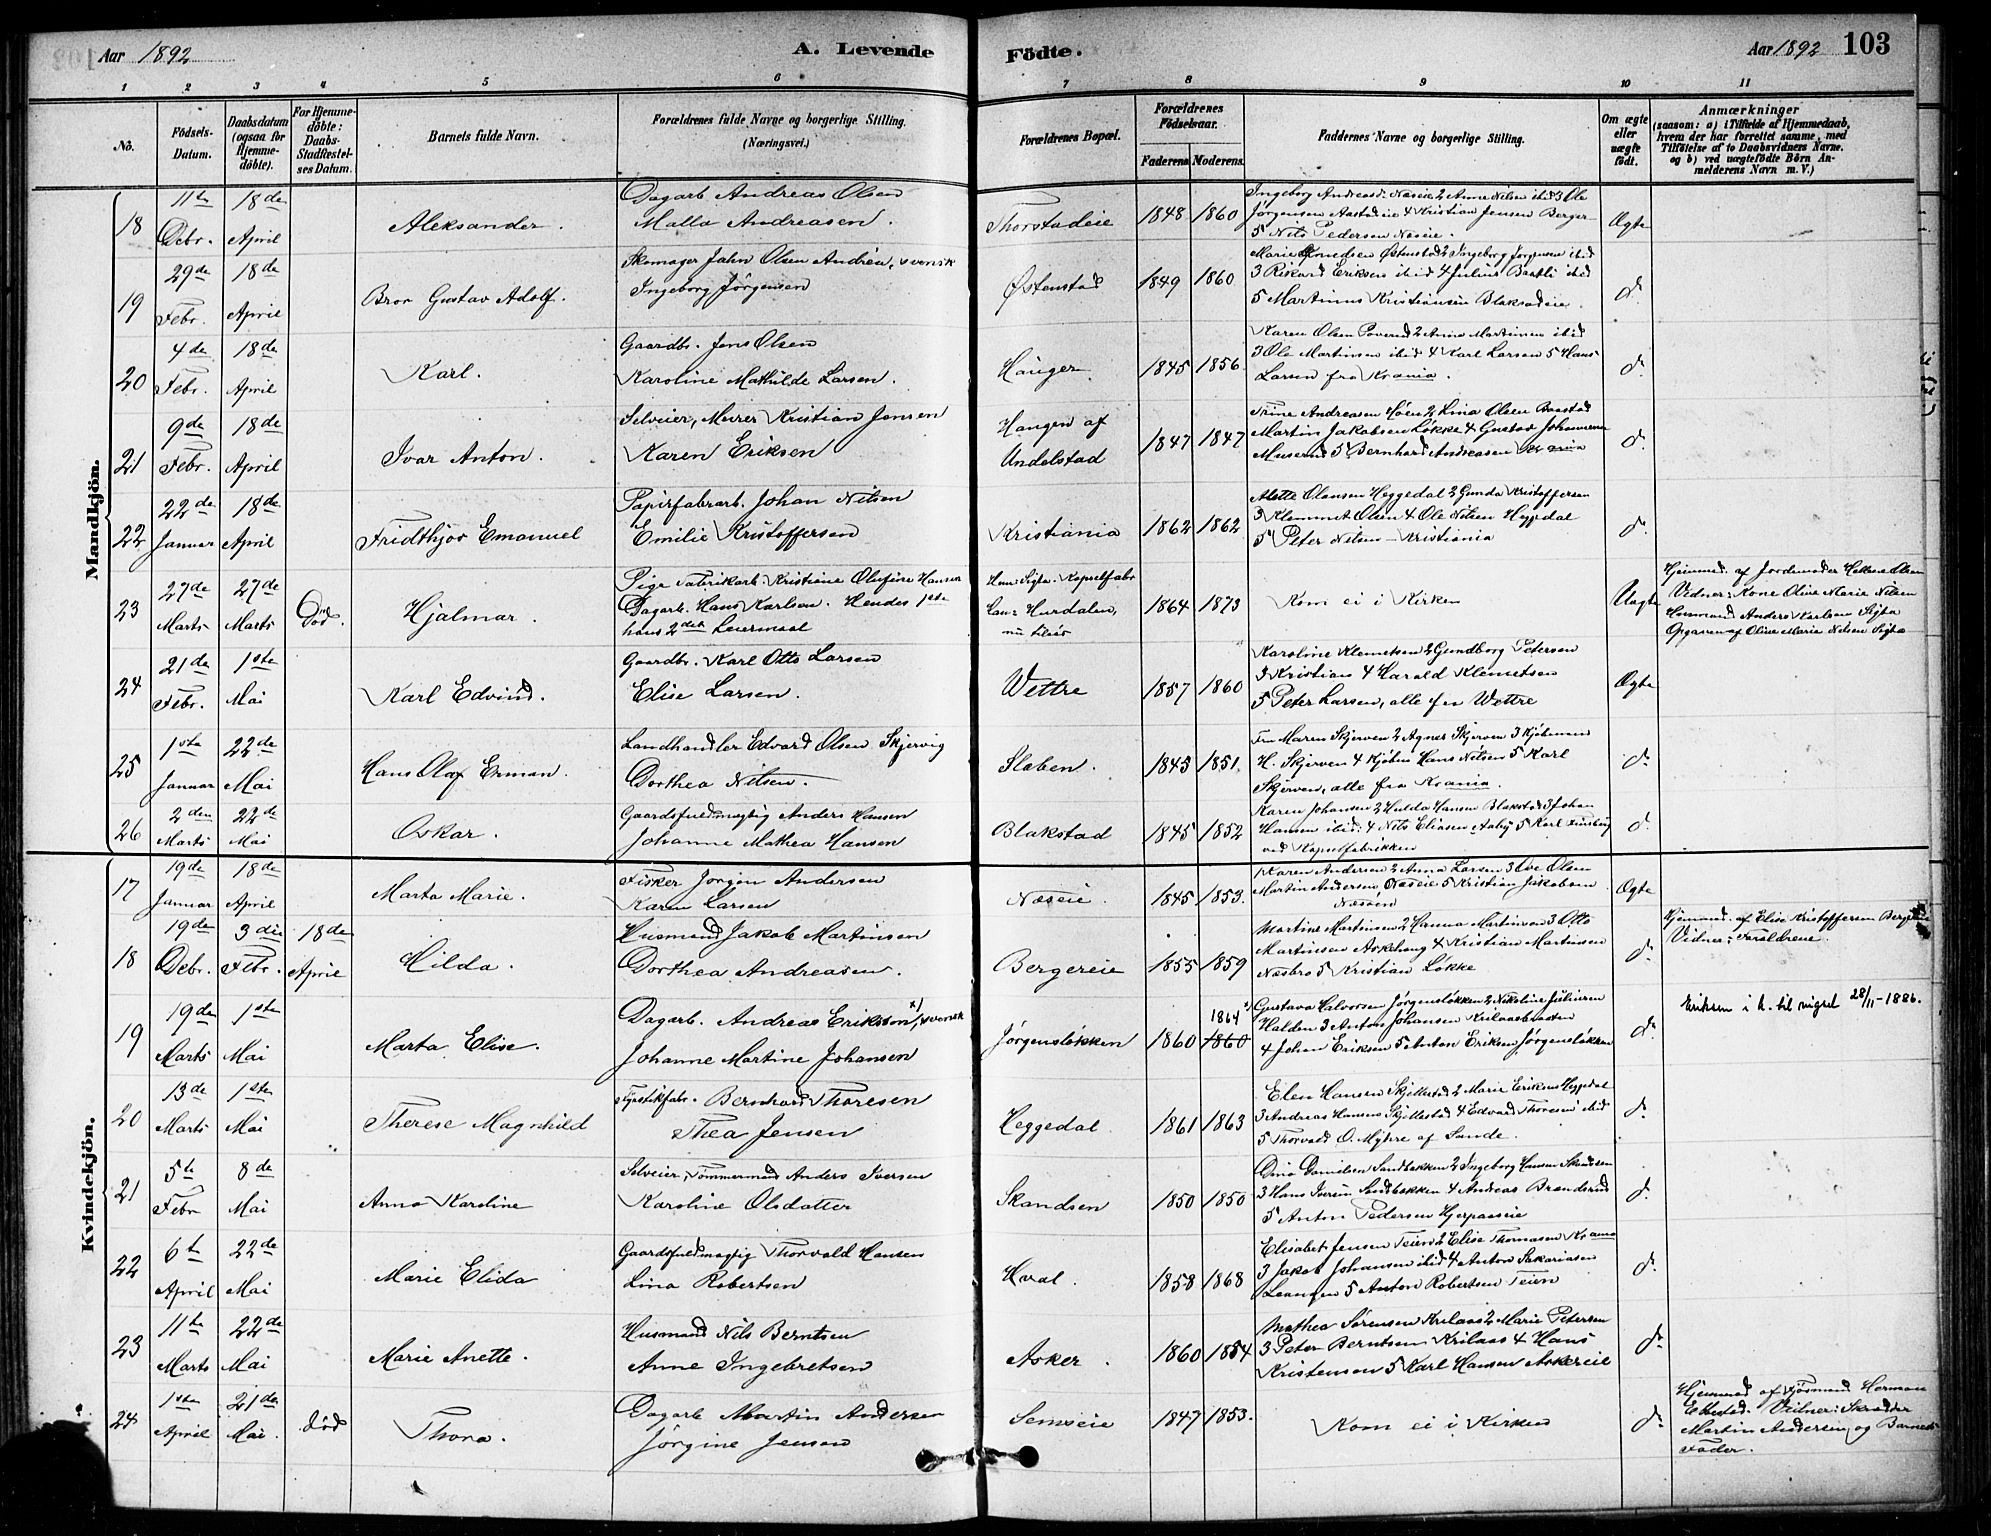 Aar 1892
A. Levende
Födte.
Aar 1892 103
1 2 3 4 5 6 7 8 9 10 11
No.
Födsels-Datum.
Daabsdatum (ogsaa for Hjemmedöbte).
For Hjemmedöbte: Daabs-Stadfæstelses Datum.
Barnets fulde Navn.
Forældrenes fulde Navne og borgerlige Stilling. (Næringsvei.)
Forældrenes Bopæl.
Forældrenes Födselsaar.
Faderens Moderens.
Faddernes Navne og borgerlige Stilling.
Om ægte eller uægte födt.
Anmærkninger
(saasom: a) i Tilfælde af Hjemmedaab,
hvem der har forrettet samme, med
Tilföielse af to Daabsvidners Navne.
og b) ved uægtefödte Börn Anmelderens Navn m. V.)
Mandkjön.
18 11te Debr. 18de April Aleksander.
Dagarb Andreas Olsen
Malla Andreasen.
Thorstadeie 1848 1860
Ingeborg Andreasd. Næseie 2 Anne Nilsen ibid 3 Ole
Jørgensen Aastadeie 4 Kristian Jensen Berger
5 Nils Pedersen Næseie.
Ægte
19 29de Febr. 18de April Bror Gustav Adolf.
Skomager Jahn Olsen Andrén, svensk
Ingeborg Jørgensen
Østenstad 1849 1860
Marie Knudsen Østenstad 2 Ingeborg Jørgensen ibid
3 Rikard Eriksen ibid 4 Julius Baatli ibid
5 Martinus Kristiansen Blakstadeie.
do.
20 4de Febr. 18de April Karl.
Gaardbr. Jens Olsen
Karoline Mathilde Larsen.
Hauger. 1845 1856.
Karen Olsen Poverud 2 Anna Martinsen ibid
3 Ole Martinsen ibid 4 Karl Larsen 5 Hans
Larsen fra Krania.
do.
21 9de Febr. 18de April Ivar Anton.
Selveier, Murer Kristian Jensen
Karen Eriksen
Haugen af
Undelstad
1847 1847
Trine Andreasen Høen 2 Lina Olsen Baastad
Martin Jakobsen Løkke 4 Gustav Johannesen
Muserud 5 Bernhard Andreasen Krania
do.
22 22de Januar 18de April Fridthjov Emanuel
Papirfabrarb. Johan Nilsen
Emilie Kristoffersen
Kristiania 1862 1862
Alette Olausen Heggedal 2 Gunda Kristoffersen
3 Klemmet Olsen 4 Ole Nilsen Heggedal
5 Peter Nilsen Kristiania
do.
23 27de Marts 27de Marts Død. Hjalmar.
Pige Fabrikarb. Kristiane Olufine Hansen
Dagarb. Hans Karlsen. Hendes 1ste
hans 2det Leiermaal
Hun: Sigta. Kapselfabr
Han: Hurdalen,
1864 1873
Kom ei i Kirken
Uægte
Hjemmed. af Jordemoder Helene Olsen
Vidner: Kone Oline Marie Nilsen
Husmand Anders Karlsen Sigta
Opgaven af Oline Marie Nilsen Sigta
24 21de Febr. 1ste Mai Karl Edvind.
Gaardbr. Karl Otto Larsen
Elise Larsen.
Wettre 1857 1860
Karoline Klemetsen 2 Gundborg Petersen
3 Kristian 4 Harald Klemetsen
5 Peter Larsen, alle fra Wettre
Ægte
25 1ste Januar 22de Mai Hans Olaf Enman.
Landhandler Edvard Olsen Skjervig
Dorthea Nilsen.
Slæben. 1845 1851.
Fru Maren Skjerven 2 Agnes Skjerven 3 Kjøbmn
H. Skjerven 4 Kjøbm Hans Nilsen 5 Karl
Skjerven, alle fra Krania.
do.
26 2den Marts 22de Mai Oskar.
Gaardsfuldmægtig Anders Hansen
Johanne Mathea Hansen
Blakstad 1845 1852
Karen Johansen 2 Hulda Hansen Blakstad 3 Johan
Hansen ibid. 4 Nils Eliasen Aaby 5 Karl
ved Kapselfabrikken
do.
Kvindekjön.
17 19de Januar 18de April Marta Marie.
Fisker Jørgen Andersen
Karen Larsen
Næseie. 1845 1853.
Karen Andersen 2 Anna Larsen 3 Ove Olsen
Martin Andersen, Næseie 5 Kristian Jakobsen
Næsøen
Ægte
18 19de Debr. 3die Febr. 18de April Hilda.
Husmand Jakob Martinsen
Dorthea Andreasen.
Bergereie 1855 1859
Martine Martinsen 2 Hanna Martinsen 3 Otto
Martinsen Askehaug 4 Kristian Martinsen
Næsbro 5 Kristian Løkke
do.
Hjemmed. af Elise Kristoffersen
Vidner: Forældrene.
19 19de Marts 1ste Mai Marta Elise.
Dagarb. Andreas Eriksson x), svensk
Johanne Martine Johansen
Jørgensløkken 1860 1864 x) 1860
Gustava Halvorsen Jørgensløkken 2 Nikoline Juliussen
Halden 3 Anton Johansen
4 Johan Eriksen 5 Anton Eriksen Jørgensløkken
do.
Eriksen i h. til vigsel 28/11-1886.
20 13de Marts 1ste Mai Therese Magnhild
Fyrstikfabr. Bernhard Thoresen
Thea Jensen
Heggedal 1861 1863
Elen Hansen Skjellestad 2 Marie Eriksen Heggedal
3 Andreas Hansen Skjellestad 4 Edvard Thoresen ibid
5 Thorvald O. Myhre af Sande.
do.
21 5te Febr 8de Mai Anna Karoline
Selveier, Tømmermand Anders Iversen
Karoline Olsdatter
Skandsen 1850 1850
Dina Danielsen Sandbakken 2 Ingeborg Hansen Skandsen
3 Hans Iversen Sandbakken 4 Andreas Brandsrud
5 Anton Pedersen
do.
22 6te April 22de Mai Marie Elida
Gaardsfuldmægtig Thorvald Hansen
Lina Robertsen
Hval. 1858 1868
Elisabet Jensen Teien 2 Elise Thomasen Krania
3 Jakob Johansen ibid 4 Anton Sakariasen
Leangen 5 Anton Robertsen Teien
do.
23 11te Marts 22de Mai Marie Anette.
Husmand Nils Berntsen
Anne Ingebretsen
Asker. 1860 1854
Mathea Sørensen Krilaas 2 Marie Petersen
3 Peter Berntsen Krilaas 4 Hans
Kristensen 5 Karl Hansen Askereie
do.
24 1ste April 21de Mai. død Thora.
Dagarb Martin Andersen
Jørgine Jensen
Semseie 1847 1853.
Kom ei i Kirken
do.
Hjemmed af Herman
Ebbestad. Vidner: Skrædder
Martin Andersen og Barnets
Fader.